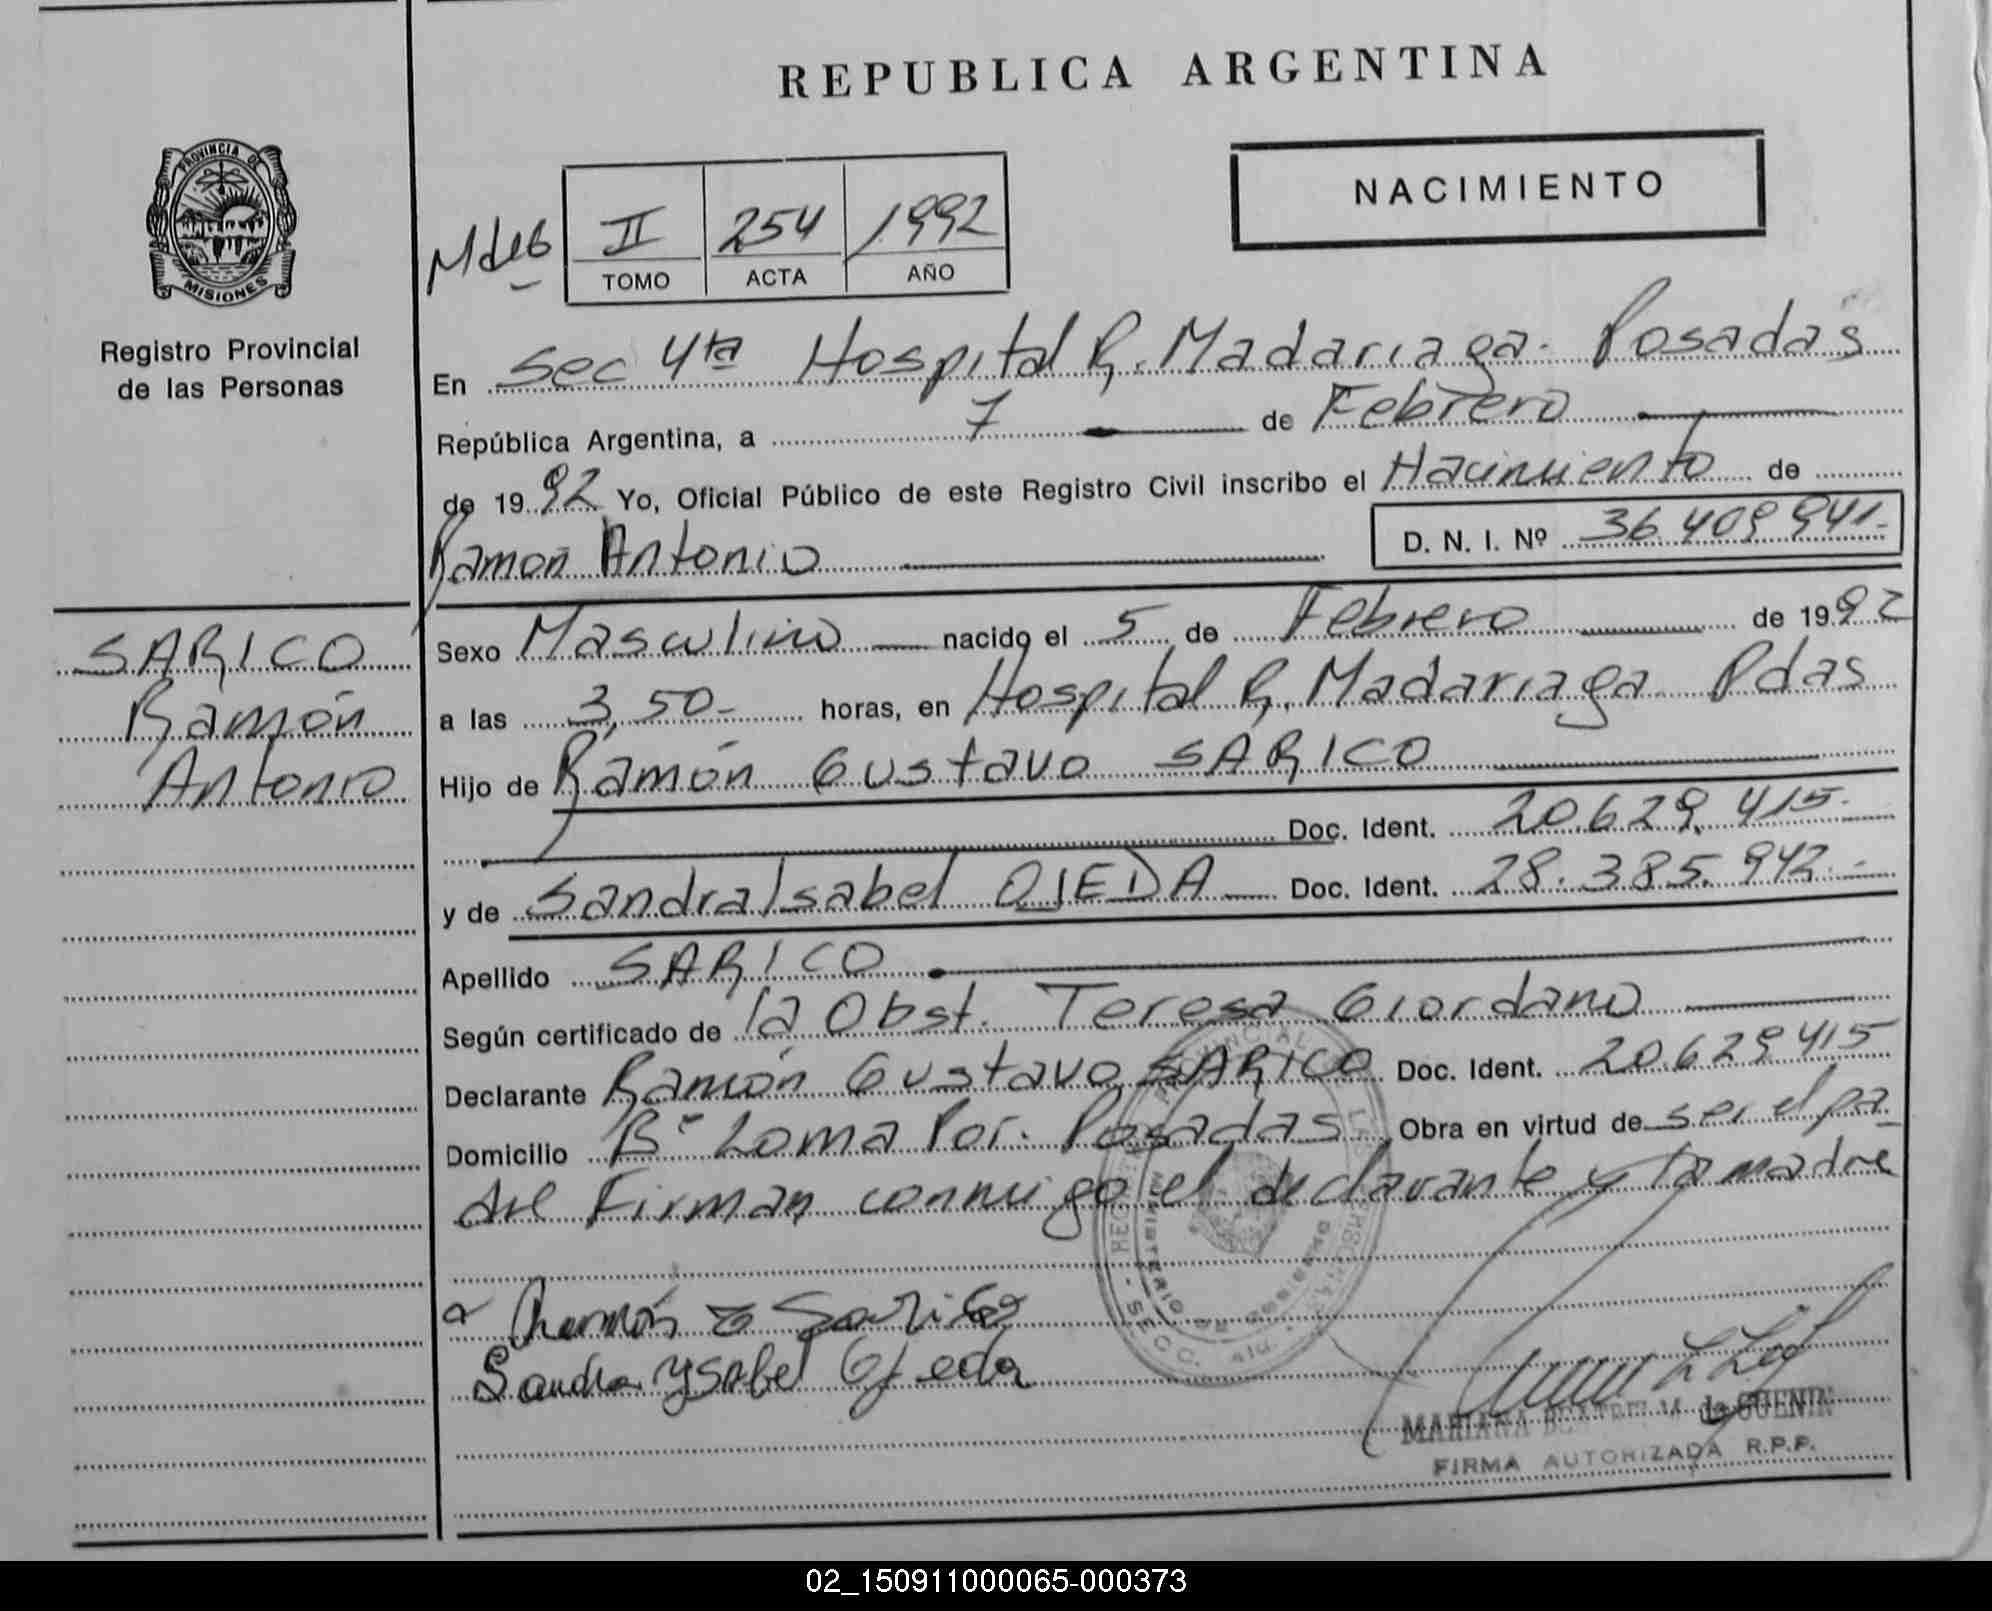 REPUBLICA ARGENTINA
PROVINCIA DE
MISIONES
Registro Provincial
de las Personas
NACIMIENTO
II 254 1992
TOMO ACTA AÑO
En Sec 4ta Hospital R. Madariaga - Posadas
República Argentina, a 7 de Febrero
de 1992 Yo, Oficial Público de este Registro Civil inscribo el Nacimiento de
Ramón Antonio D. N. I. Nº 36.409.941.-
SARICO
Ramón
Antonio
Sexo Masculino nacido el 5 de Febrero de 1992
a las 3,50- horas, en Hospital R. Madariaga Pdas
Hijo de Ramón Gustavo SARICO
Doc. Ident. 20.629.415.-
y de Sandra Isabel OJEDA Doc. Ident. 28.385.942.-
Apellido SARICO
Según certificado de la Obst. Teresa Giordano
Declarante Ramón Gustavo SARICO Doc. Ident. 20.629.415
Domicilio Bº Loma Por. Posadas Obra en virtud de ser el pa
dre Firman conmigo el declarante y la madre
Sandra Ysabel Ojeda
MARIANA de GUENIN
FIRMA AUTORIZADA R.P.P.
02_150911000065-000373